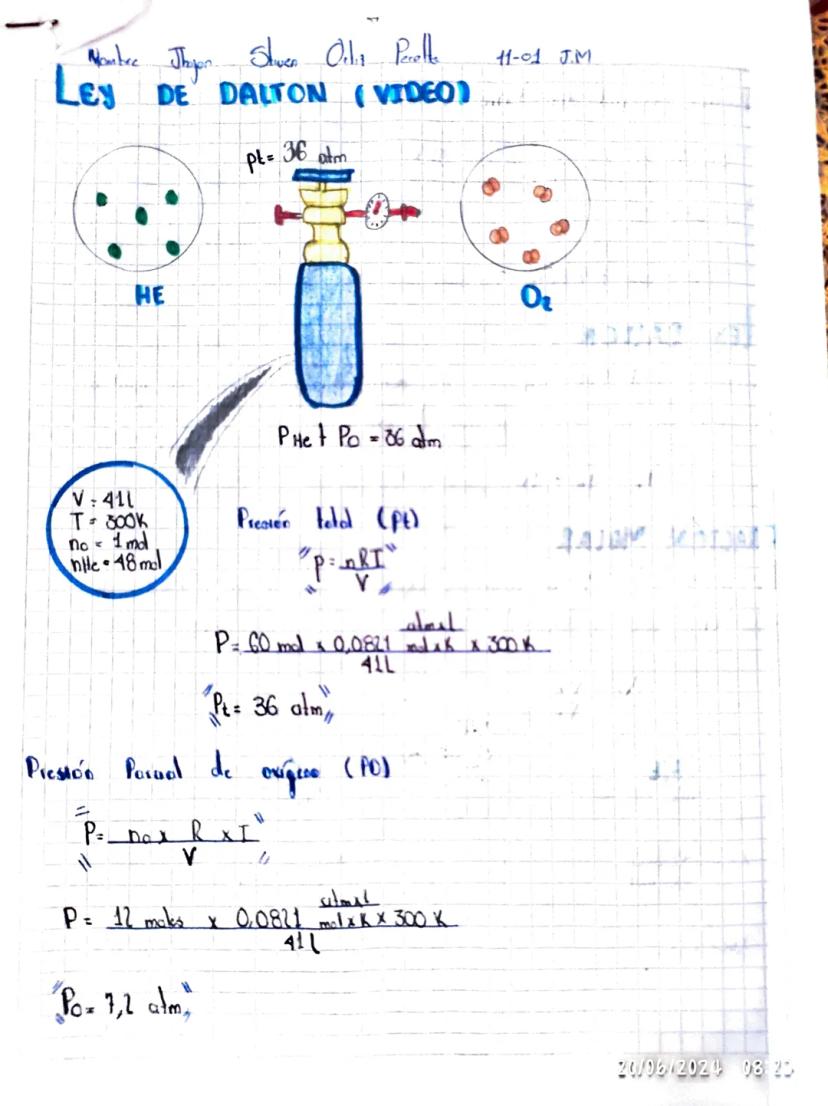 Nombre Jhojan Stiven Ortiz Peralta 11-01 J.M
LEY DE DALTON (VIDEO)
pt = 36 atm
HE
O₂
P He + PO = 36 atm
V = 41L
T = 300K
no = 1 mol
nHe = 48 mol
Presión total (pt)
"P = nRT / V"
P = 60 mol x 0,0821 atmxL / molxK x 300 K / 41L
"Pt = 36 atm"
Presión Parcial de oxígeno (PO)
"P = no x R x T / V"
P = 12 moles x 0,0821 atmxL / molxK x 300 K / 41L
"Po = 7,2 atm"
20/06/2024 08:23